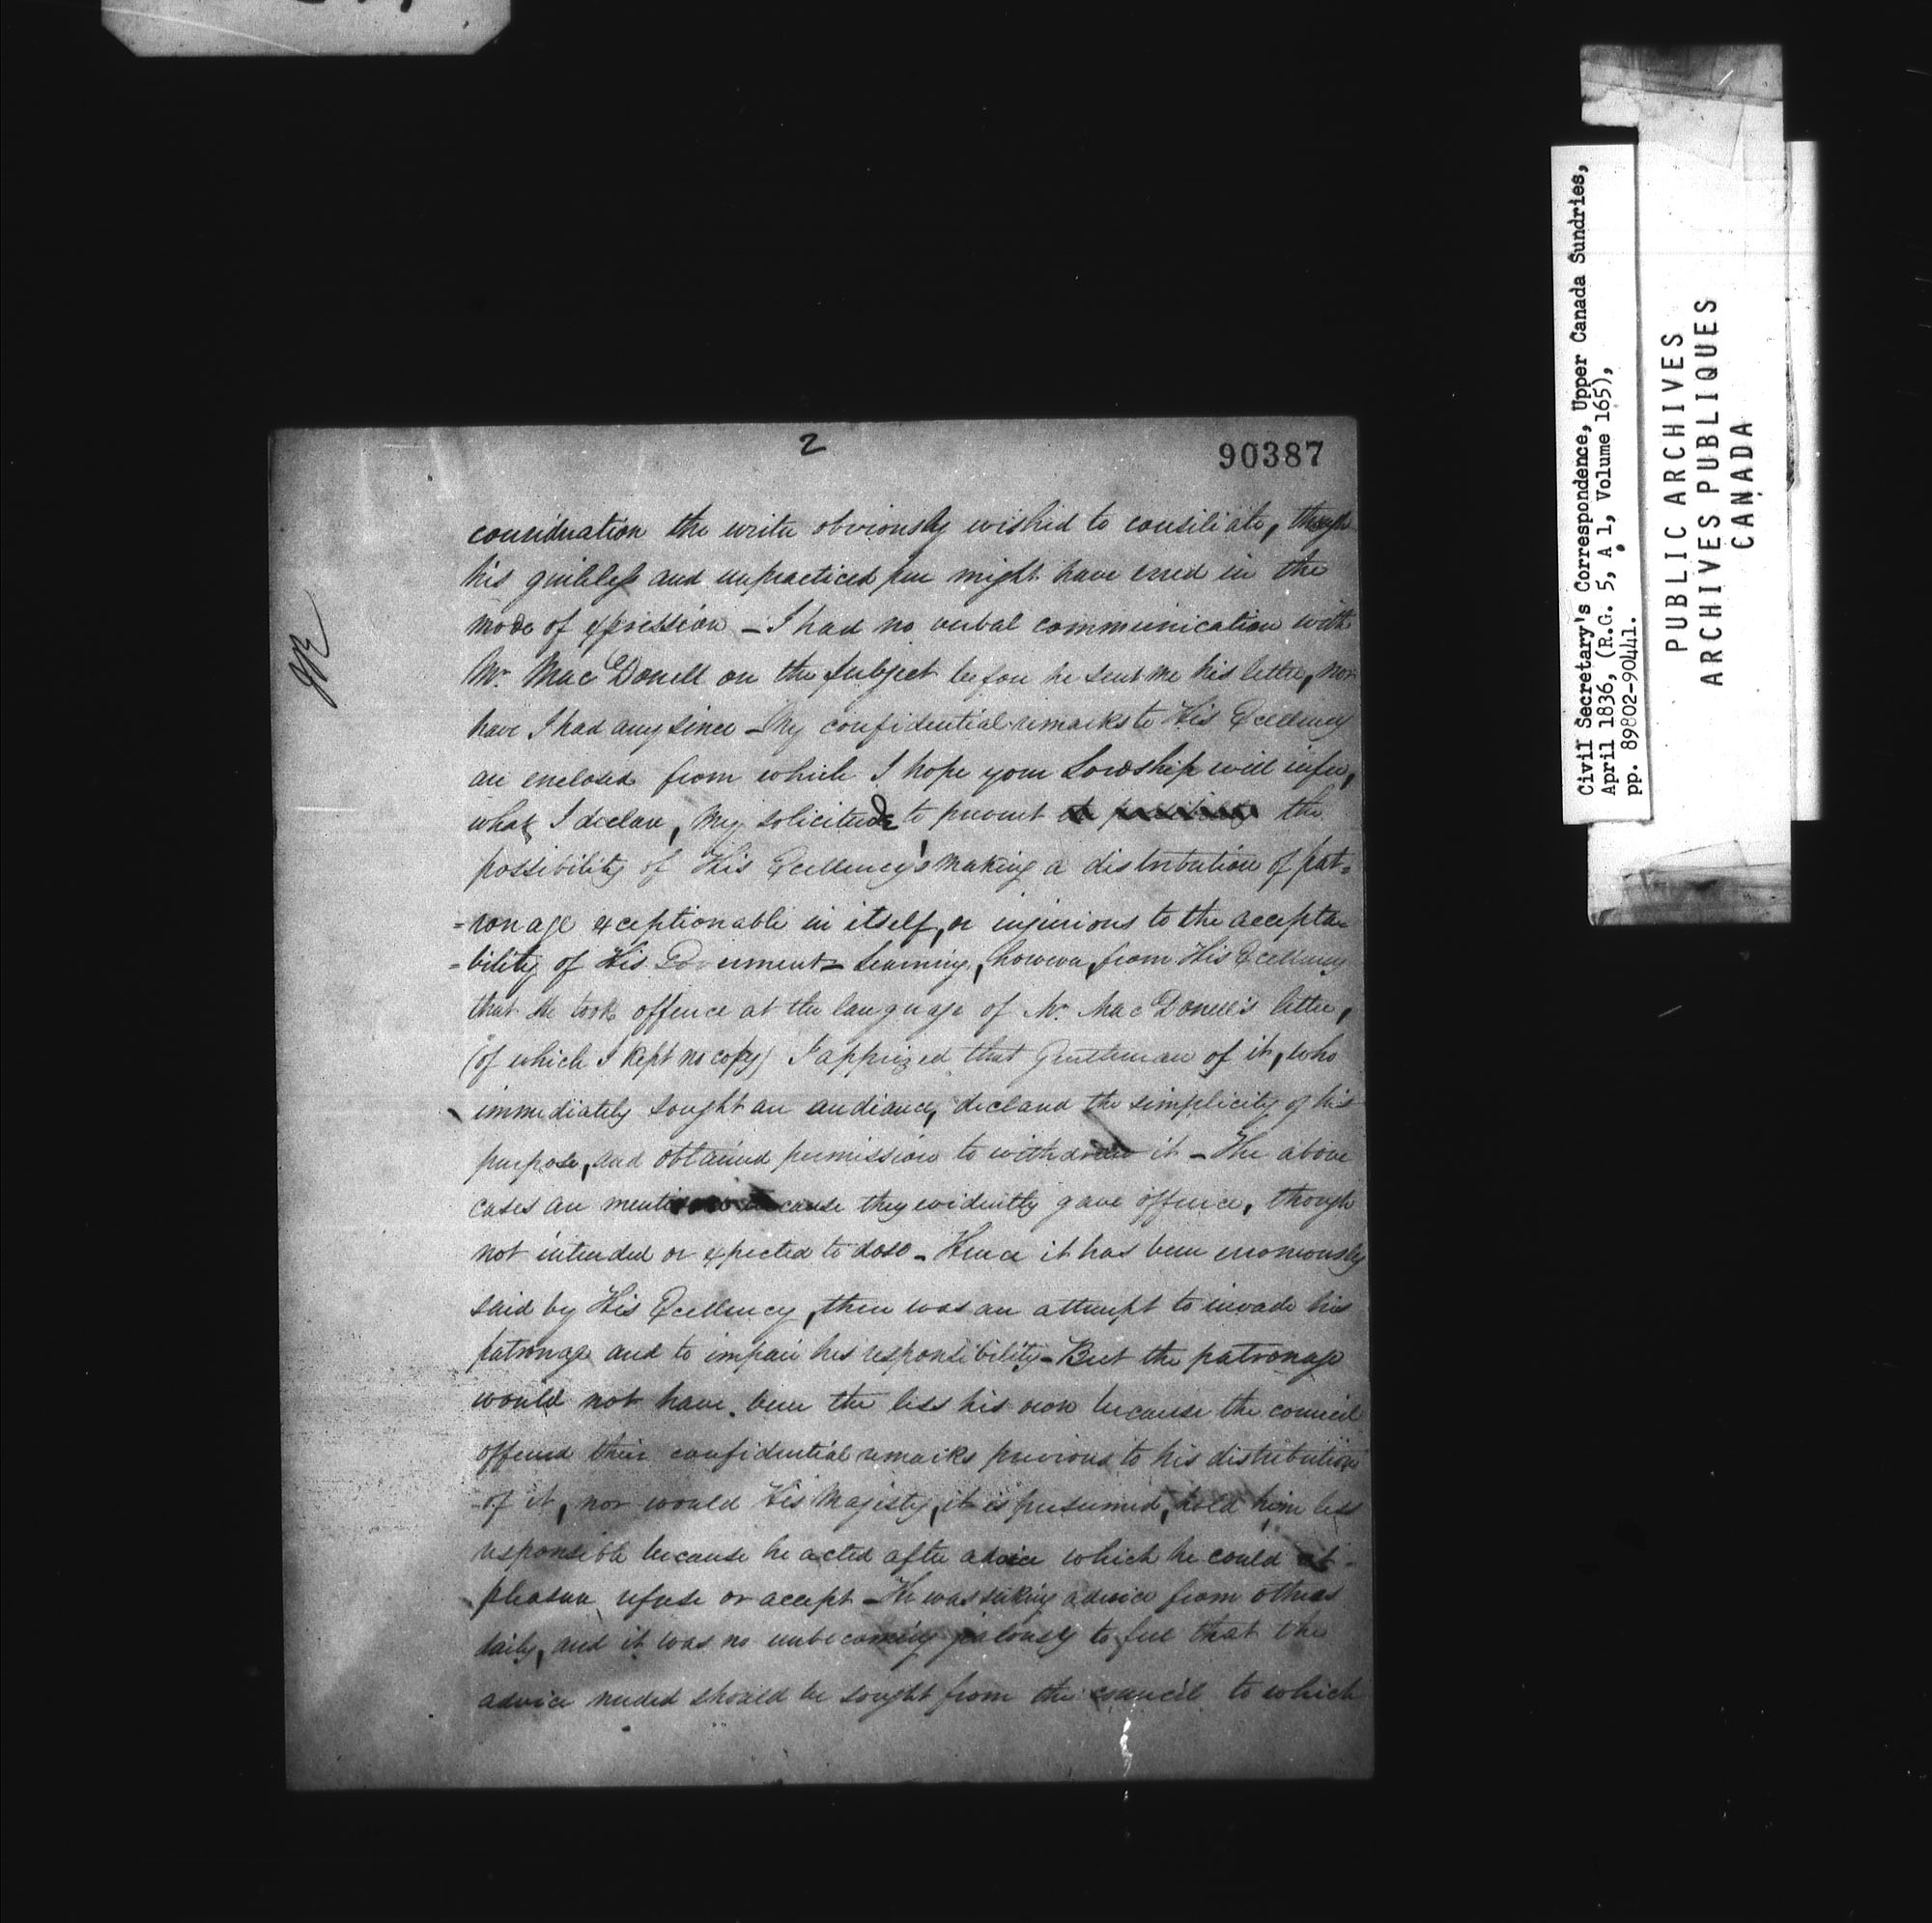 2
90387
consideration the writer obviously wished to consiliate, though
his guileless and unpracticed pen might have erred in the
mode of expression – I had no verbal communication with
Mr. MacDonell on the subject before he sent me his letter, nor
have I had any since – My confidential remarks to His Excellency
are enclosed from which I hope your Lordship will infer,
what I declare, my solicitude to prevent the
possibility of His Excellency's making a distribution of pat=
=ronage exceptionable in itself, or injurious to the accepta
=bility of His Government – Learning, however, from His Excellency
that He took offence at the language of Mr. MacDonell's letter,
(of which I kept no copy) I apprized that Gentleman of it, who
immediately sought an audiance, declared the simplicity of his
purpose, and obtained permission to withdrew it – The above
cases are mentioned because they evidently gave offence, though
not intended or expected to doso – Hence it has been erroneously
said by His Excellency, there was an attempt to invade his
patronage and to impair his responsibility – But the patronage
would not have been the less his own because the council
offered their confidential remarks previous to his distribution
of it, nor would His Majesty, it is presumed, hold him less
responsible because he acted after advice which he could at
pleasure refuse or accept – He was taking advice from others
daily, and it was no unbecoming jealousy to feel that the
advice needed should be sought from the council to which
Civil Secretary's Correspondence, Upper Canada Sundries,
April 1836, (R.G. 5, A 1, Volume 165),
pp. 89802-90441.
PUBLIC ARCHIVES
ARCHIVES PUBLIQUES
CANADA